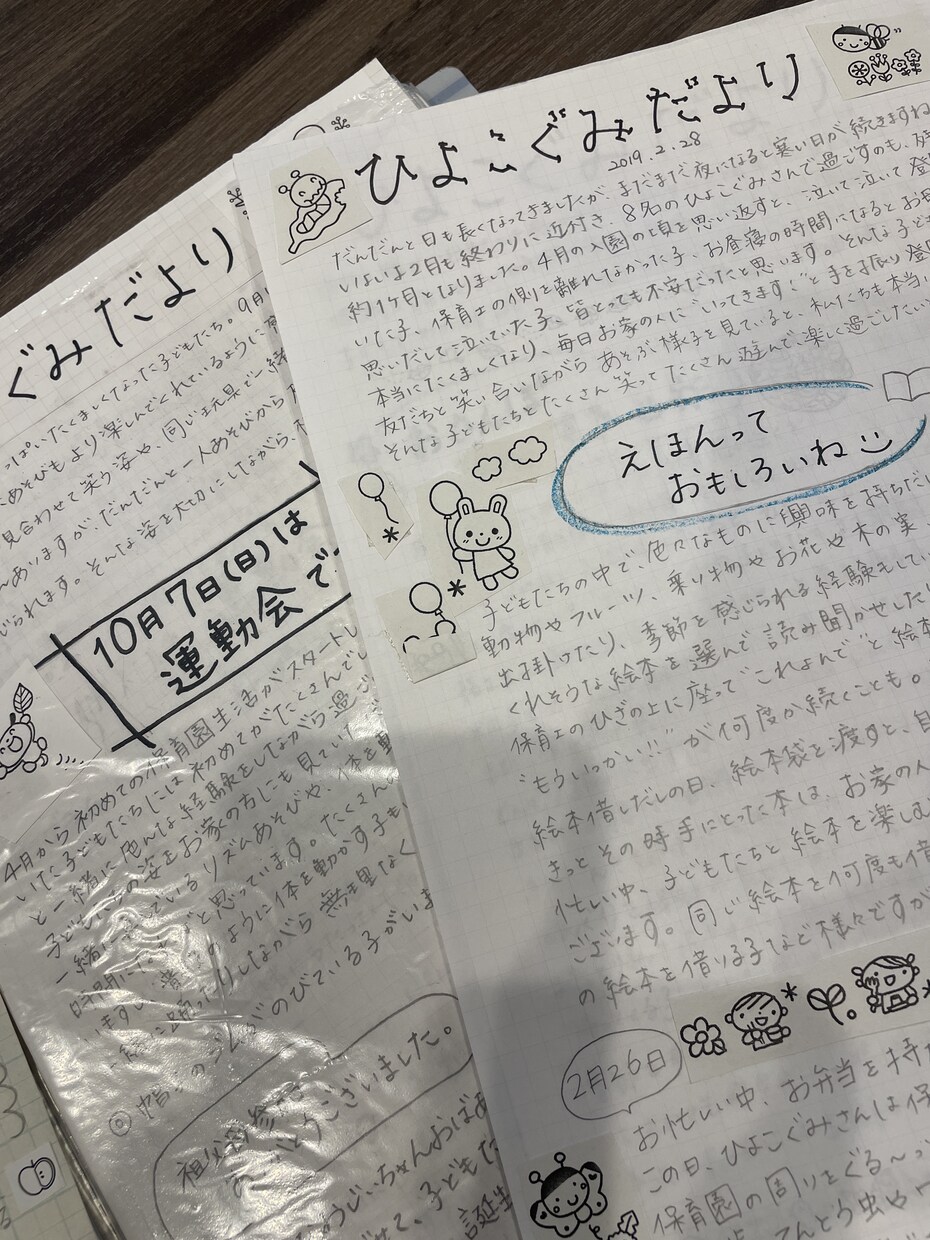 ひよこぐみだより
2019.2.28
だんだんと日も長くなってきましたが、まだまだ夜になると寒い日が続きますね
いよいよ2月も終わりに近付き、8名のひよこぐみさんで過ごすのも、残
約1ヶ月となりました。4月の入園の頃を思い返すと、泣いて泣いて登
いた子、保育士の側を離れなかった子、お昼寝の時間になるとお母
思いだして泣いていた子、皆とっても不安だったと思います。そんな子ど
本当にたくましくなり、毎日お家の人に"いってきます!"と手を振り登
友だちと笑い合いながらあそぶ様子を見ていると、私たちも本当に
そんな子どもたちとたくさん笑ってたくさん遊んで、楽しく過ごしたい
えほんって
おもしろいね
子どもたちの中で、色々なものに興味を持ちだし
動物やフルーツ、乗り物やお花や木の実
出掛けたり、季節を感じられる経験をしてい
くれそうな絵本を選んで読み聞かせしたり
保育士のひざの上に座って"これよんで"と絵本
"もういっかい!!"が何度か続くことも。
絵本借しだしの日、絵本袋を渡すと、自
きっとその時手にとった本は、お家の人
忙しい中、子どもたちと絵本を楽しむ
ございます。同じ絵本を何度も借
の絵本を借りる子など様々ですが
2月26日
お忙しい中、お弁当を持た
この日、ひよこぐみさんは保
保育園の周りをぐる~っ
てんとう虫や
ぐみだより
っぱいたくましくなった子どもたち。9月
あそびもより楽しんでくれているように
見合わせて笑う姿や、同じ玩具で一緒
んありますが、だんだんと一人あそびから
じられます。そんな姿を大切にしながら、
10月7日(日)は
運動会で
4月から初めての保育園生活がスタートし
いた子どもたちには初めてがたくさんでし
と一緒に色んな経験をしながら過ご
子どもたちの姿をお家の方にも見てい
一緒に
ているリズムあそびや、体を動
時間に
と思っています。たくさん
のように体を動かす子も
しながら無理なく
のびている子がいま
祖父母参
うございました。
うじいちゃんおばあ
子どもた
誕生